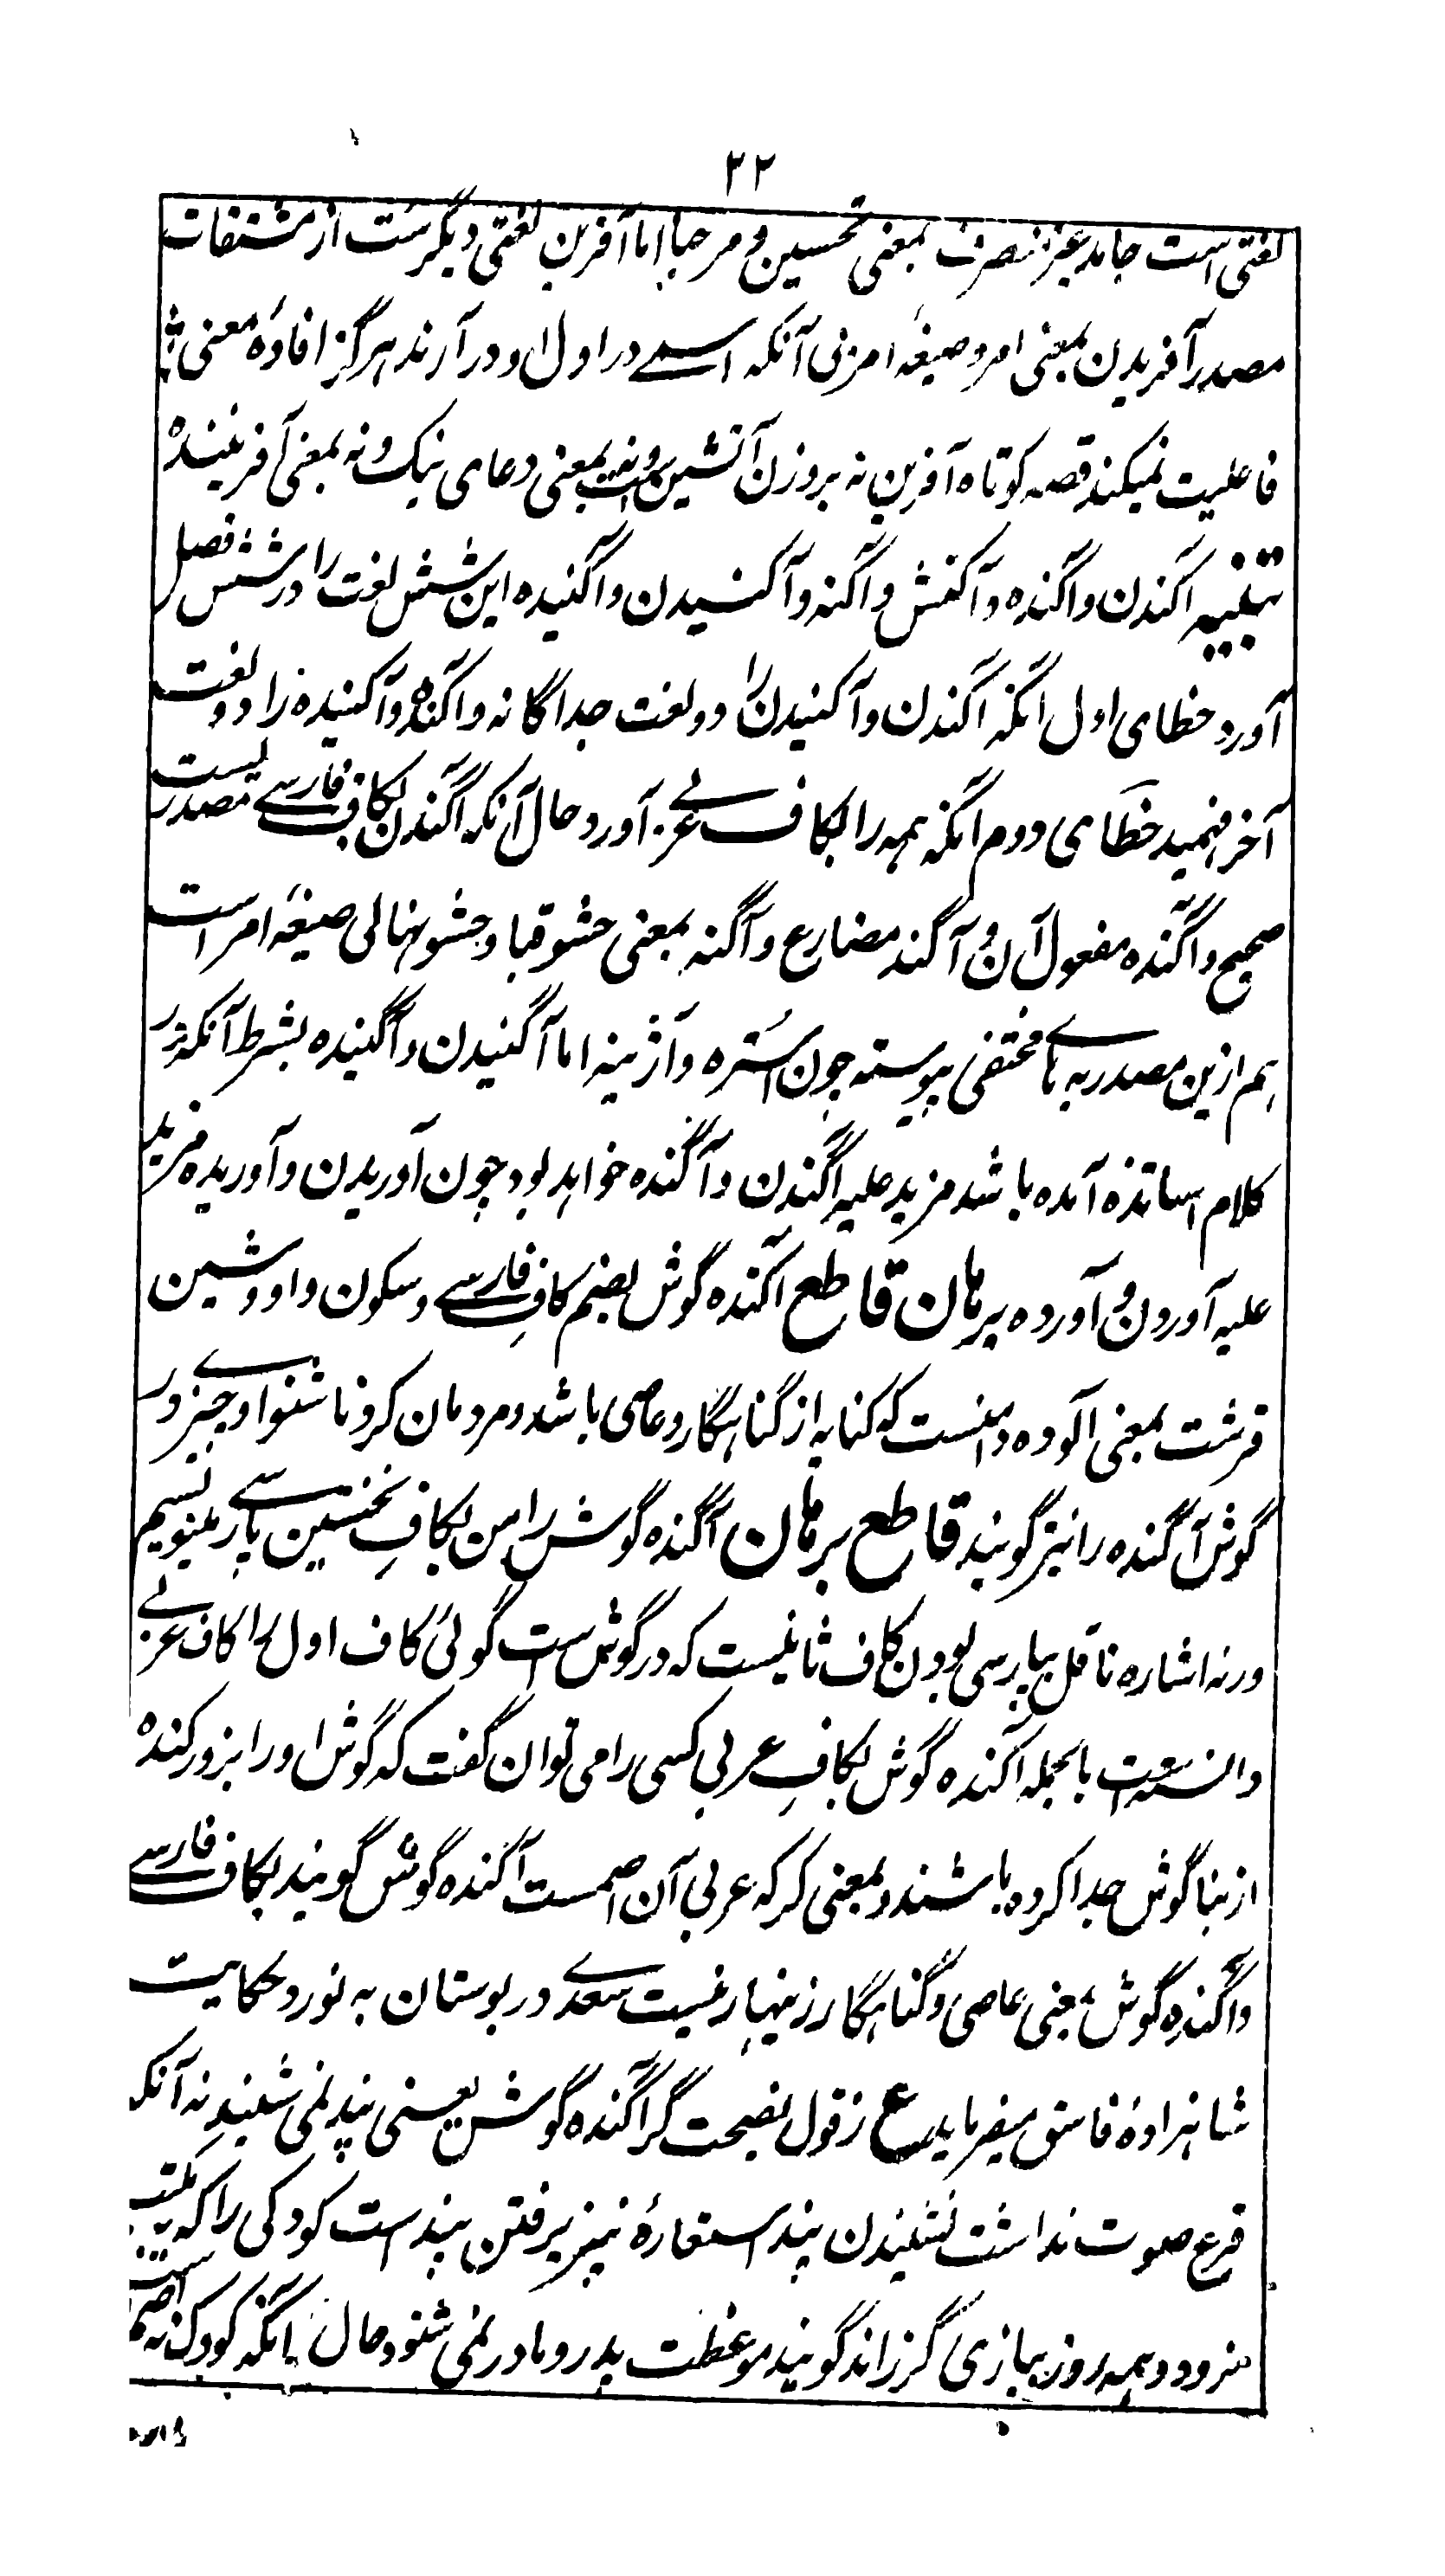 ۳۲
لغتی است جامد غیر منصرف بمعنی تحسین و مرحبا اما آفرین لغتی دیگرست از مشتقات
مصدر آفریدن بمعنی امر و صیغهٔ امر بی آنکه اسمے در اول او در آرند هرگز افادهٔ معنی
فاعلیت نمیکند قصه کوتاه آفرین نه بروزن آتشین ست و نه بمعنی دعای نیک و نه بمعنی آفریننده
تنبیه آکندن و آکنده و آکنش و آکنه و آکنیدن و آکنیده این شش لغت را در شش فصل
آورد خطای اول آنکه آکندن و آکنیدن را دو لغت جداگانه و آکنده و آکنیده را دو لغت
آخر فهمید خطای دوم آنکه همه را بکاف عربے آورد حال آنکه آگندن بکاف فارسے مصدریست
صحیح و آگنده مفعول آن و آگند مضارع و آگنه بمعنی حشو قبا و حشو نهالی صیغهٔ امر است
هم ازین مصدر بہ ہاے مختفی پیوسته چون استره و آژینه اما آگنیدن و آگنیده بشرط آنکه در
کلام اساتذه آمده باشد مزید علیه آگندن و آگنده خواهد بود چون آوریدن و آوریده مزید
علیه آوردن و آورده برهان قاطع آکنده گوش بضم کافِ فارسے و سکون واو و شین
قرشت بمعنی آلوده دامنست که کنایه از گناهگار و عاصی باشد و مردمان کر و ناشنوا و چیزے در
گوش آگنده را نیز گویند قاطع برهان آگنده گوش را من بکافِ نخستین پارسے مینویسم
ورنه اشاره ناقل بپارسی بودن کاف ثانیست که در گوش است گوئی کاف اول را کاف عربے
دانسته است بالجمله آکنده گوش بکافِ عربی کسی را می توان گفت که گوش او را بزور کنده
از بناگوش جدا کرده باشند و بمعنی کر که عربی آن اصمست آگنده گوش گویند بکاف فارسے
و آگنده گوش بمعنی عاصی و گناهگار زینهار نیست سعدے در بوستان به نورد حکایت
شاهزادهٔ فاسق میفرماید ع ز قول نصیحت گر آگنده گوش یعنی پند نمی شنید نه آنکه
قرع صوت نداشت نشنیدن پند استعارهٔ نپذیرفتن پند است کودکی را که بمکتب
نرود و همه روز ببازی گزراند گویند موعظت پدر و مادر نمی شنود حال آنکه کودک نه اصم است